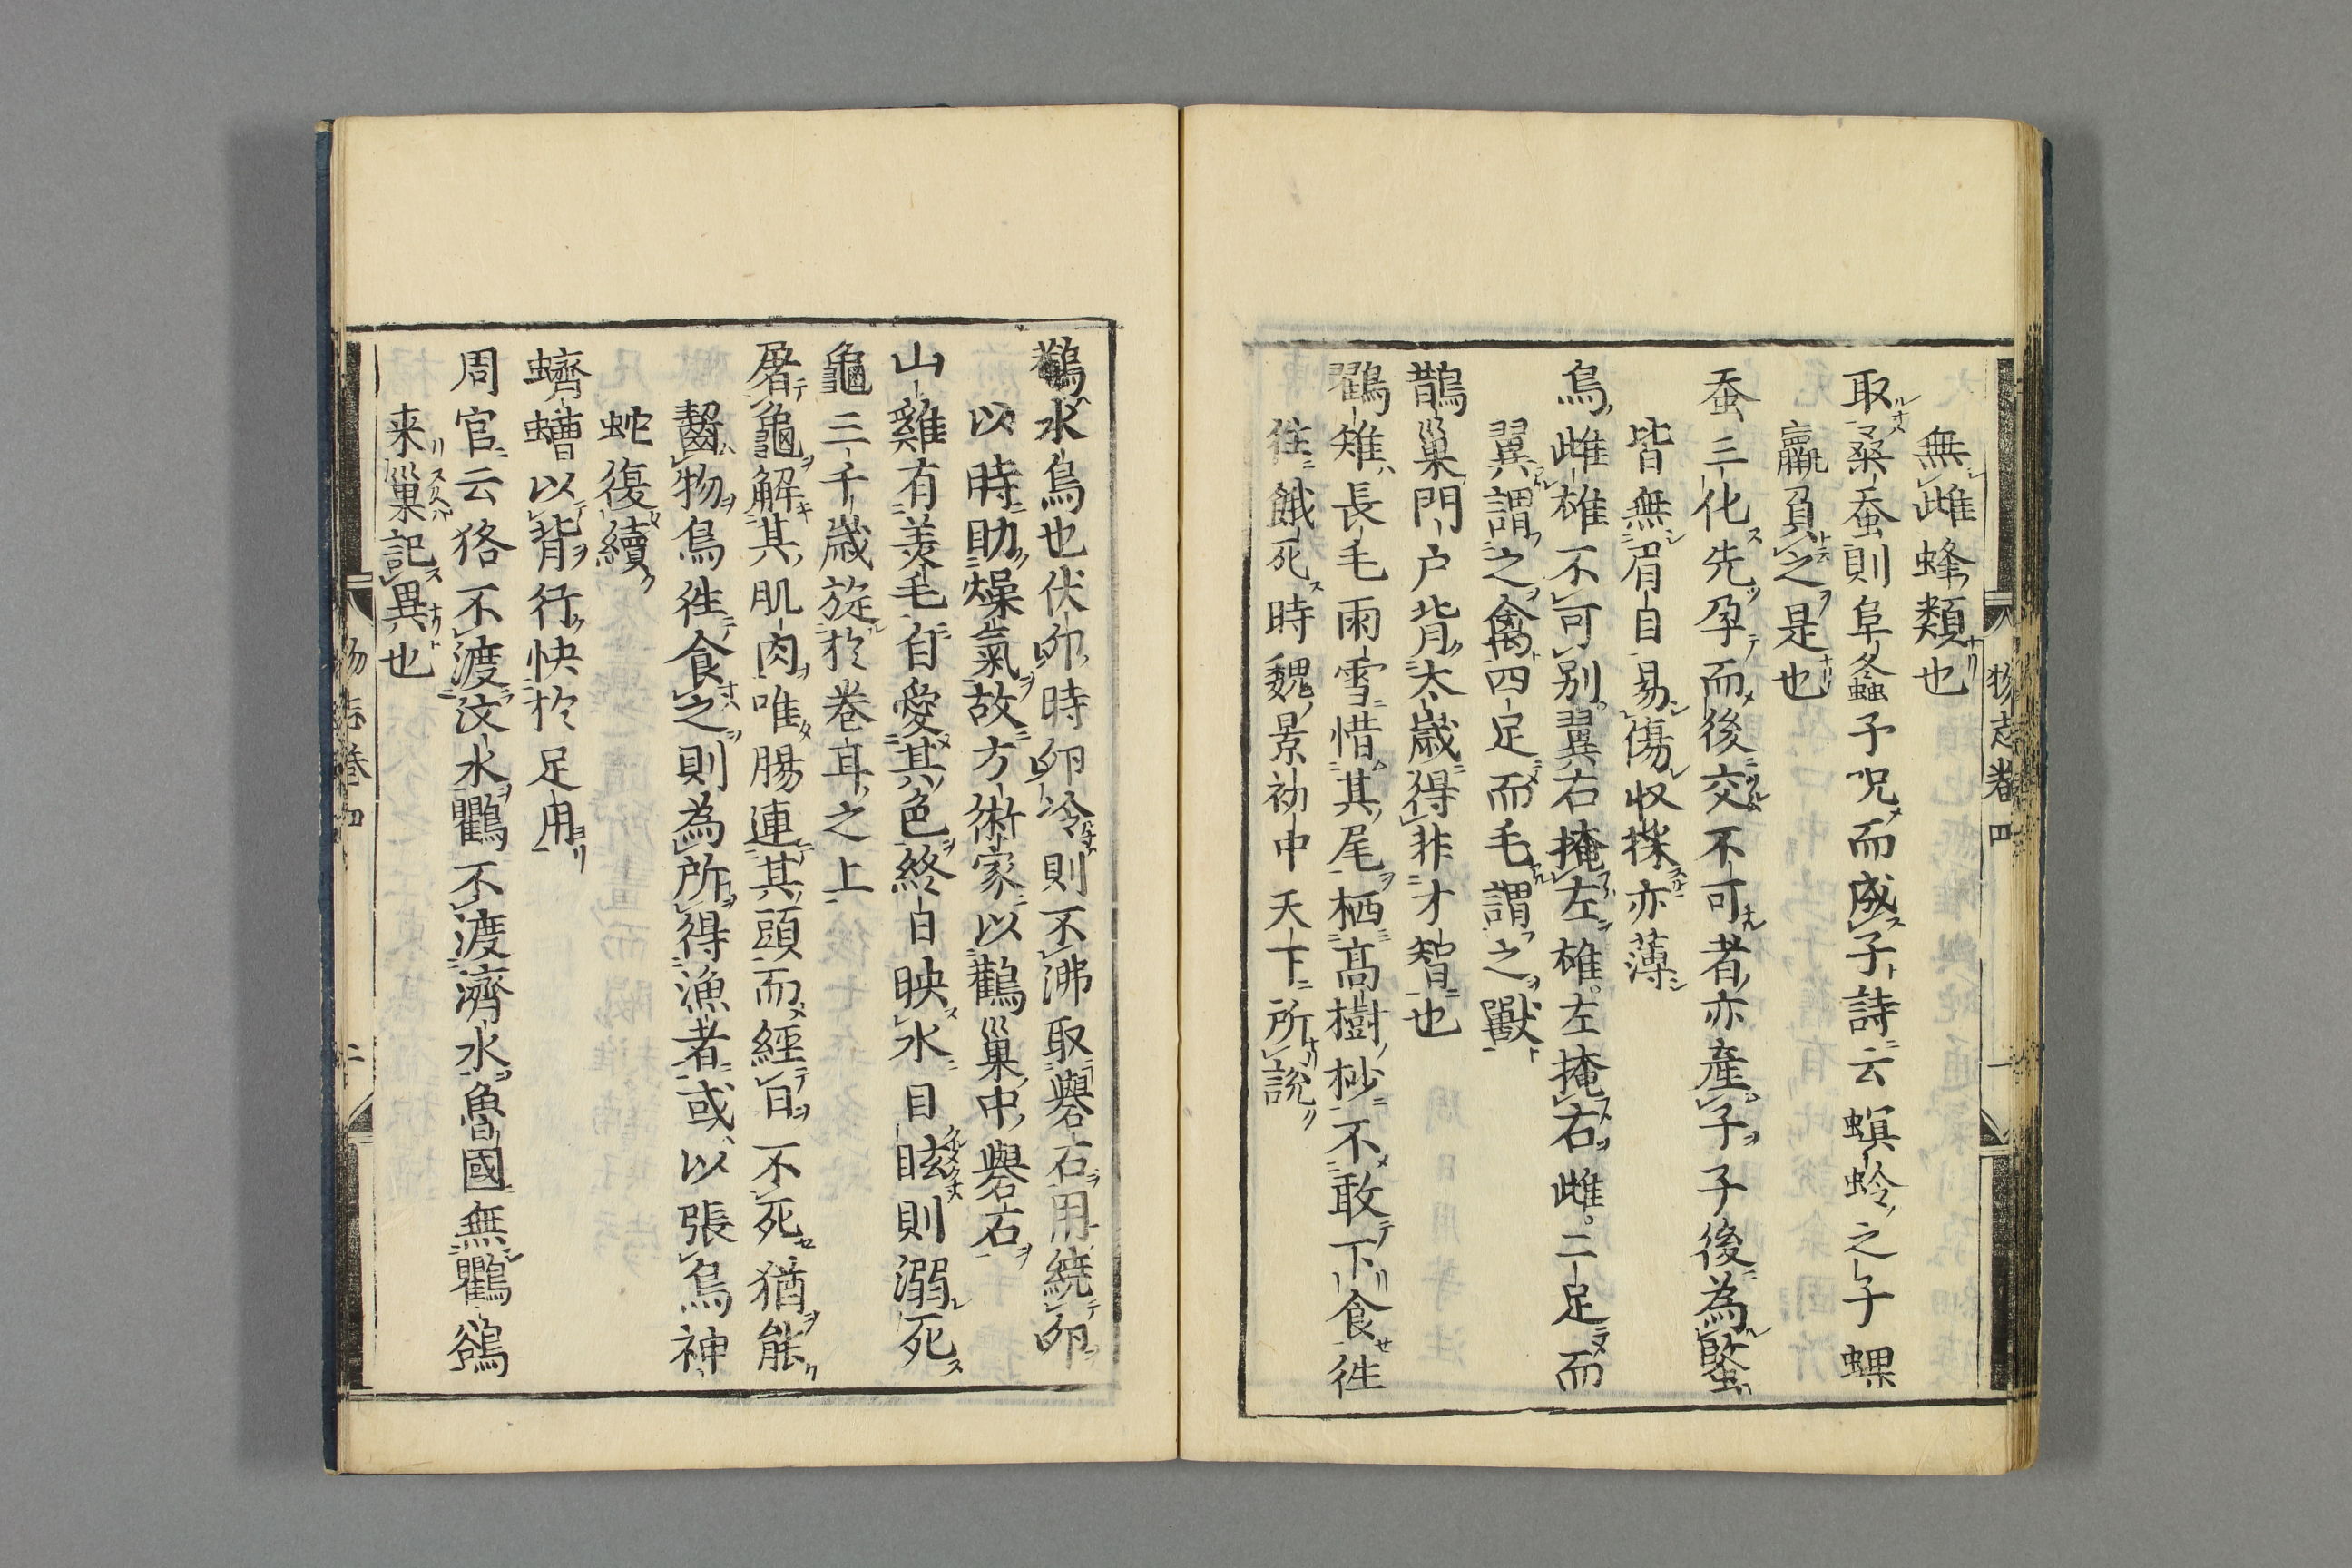 無雌蜂類也
取桑蚕則阜螽子呪而成子詩云螟蛉之子蜾
蠃負之是也
蚕三化先孕而後交不可者亦産子子後為𧕅
皆無眉目易傷収採亦薄
鳥雌雄不可别翼右掩左雄左掩右雌二足而
翼謂之禽四足而毛謂之獸
鵲巢門户背太歲得非才智也
鸐雉長毛雨雪惜其尾栖高樹杪不敢下食徃
徃餓死時魏景初中天下所說
物志卷四
一
鸛水鳥也伏卵時卵冷則不沸取礜石用繞卵
以時助燥氣故方術家以鸛巢中礜石
山雞有美毛自愛其色終日映水目眩則溺死
龜三千歲旋於卷耳之上
屠龜解其肌肉唯腸連其頭而經日不死猶能
齧物鳥徃食之則為所得漁者或以張鳥神
蛇復續
蠐螬以背行快於足用
周官云狢不渡汶水鸜不渡濟水魯國無鸜鵒
来巢記異也
物志卷四
二